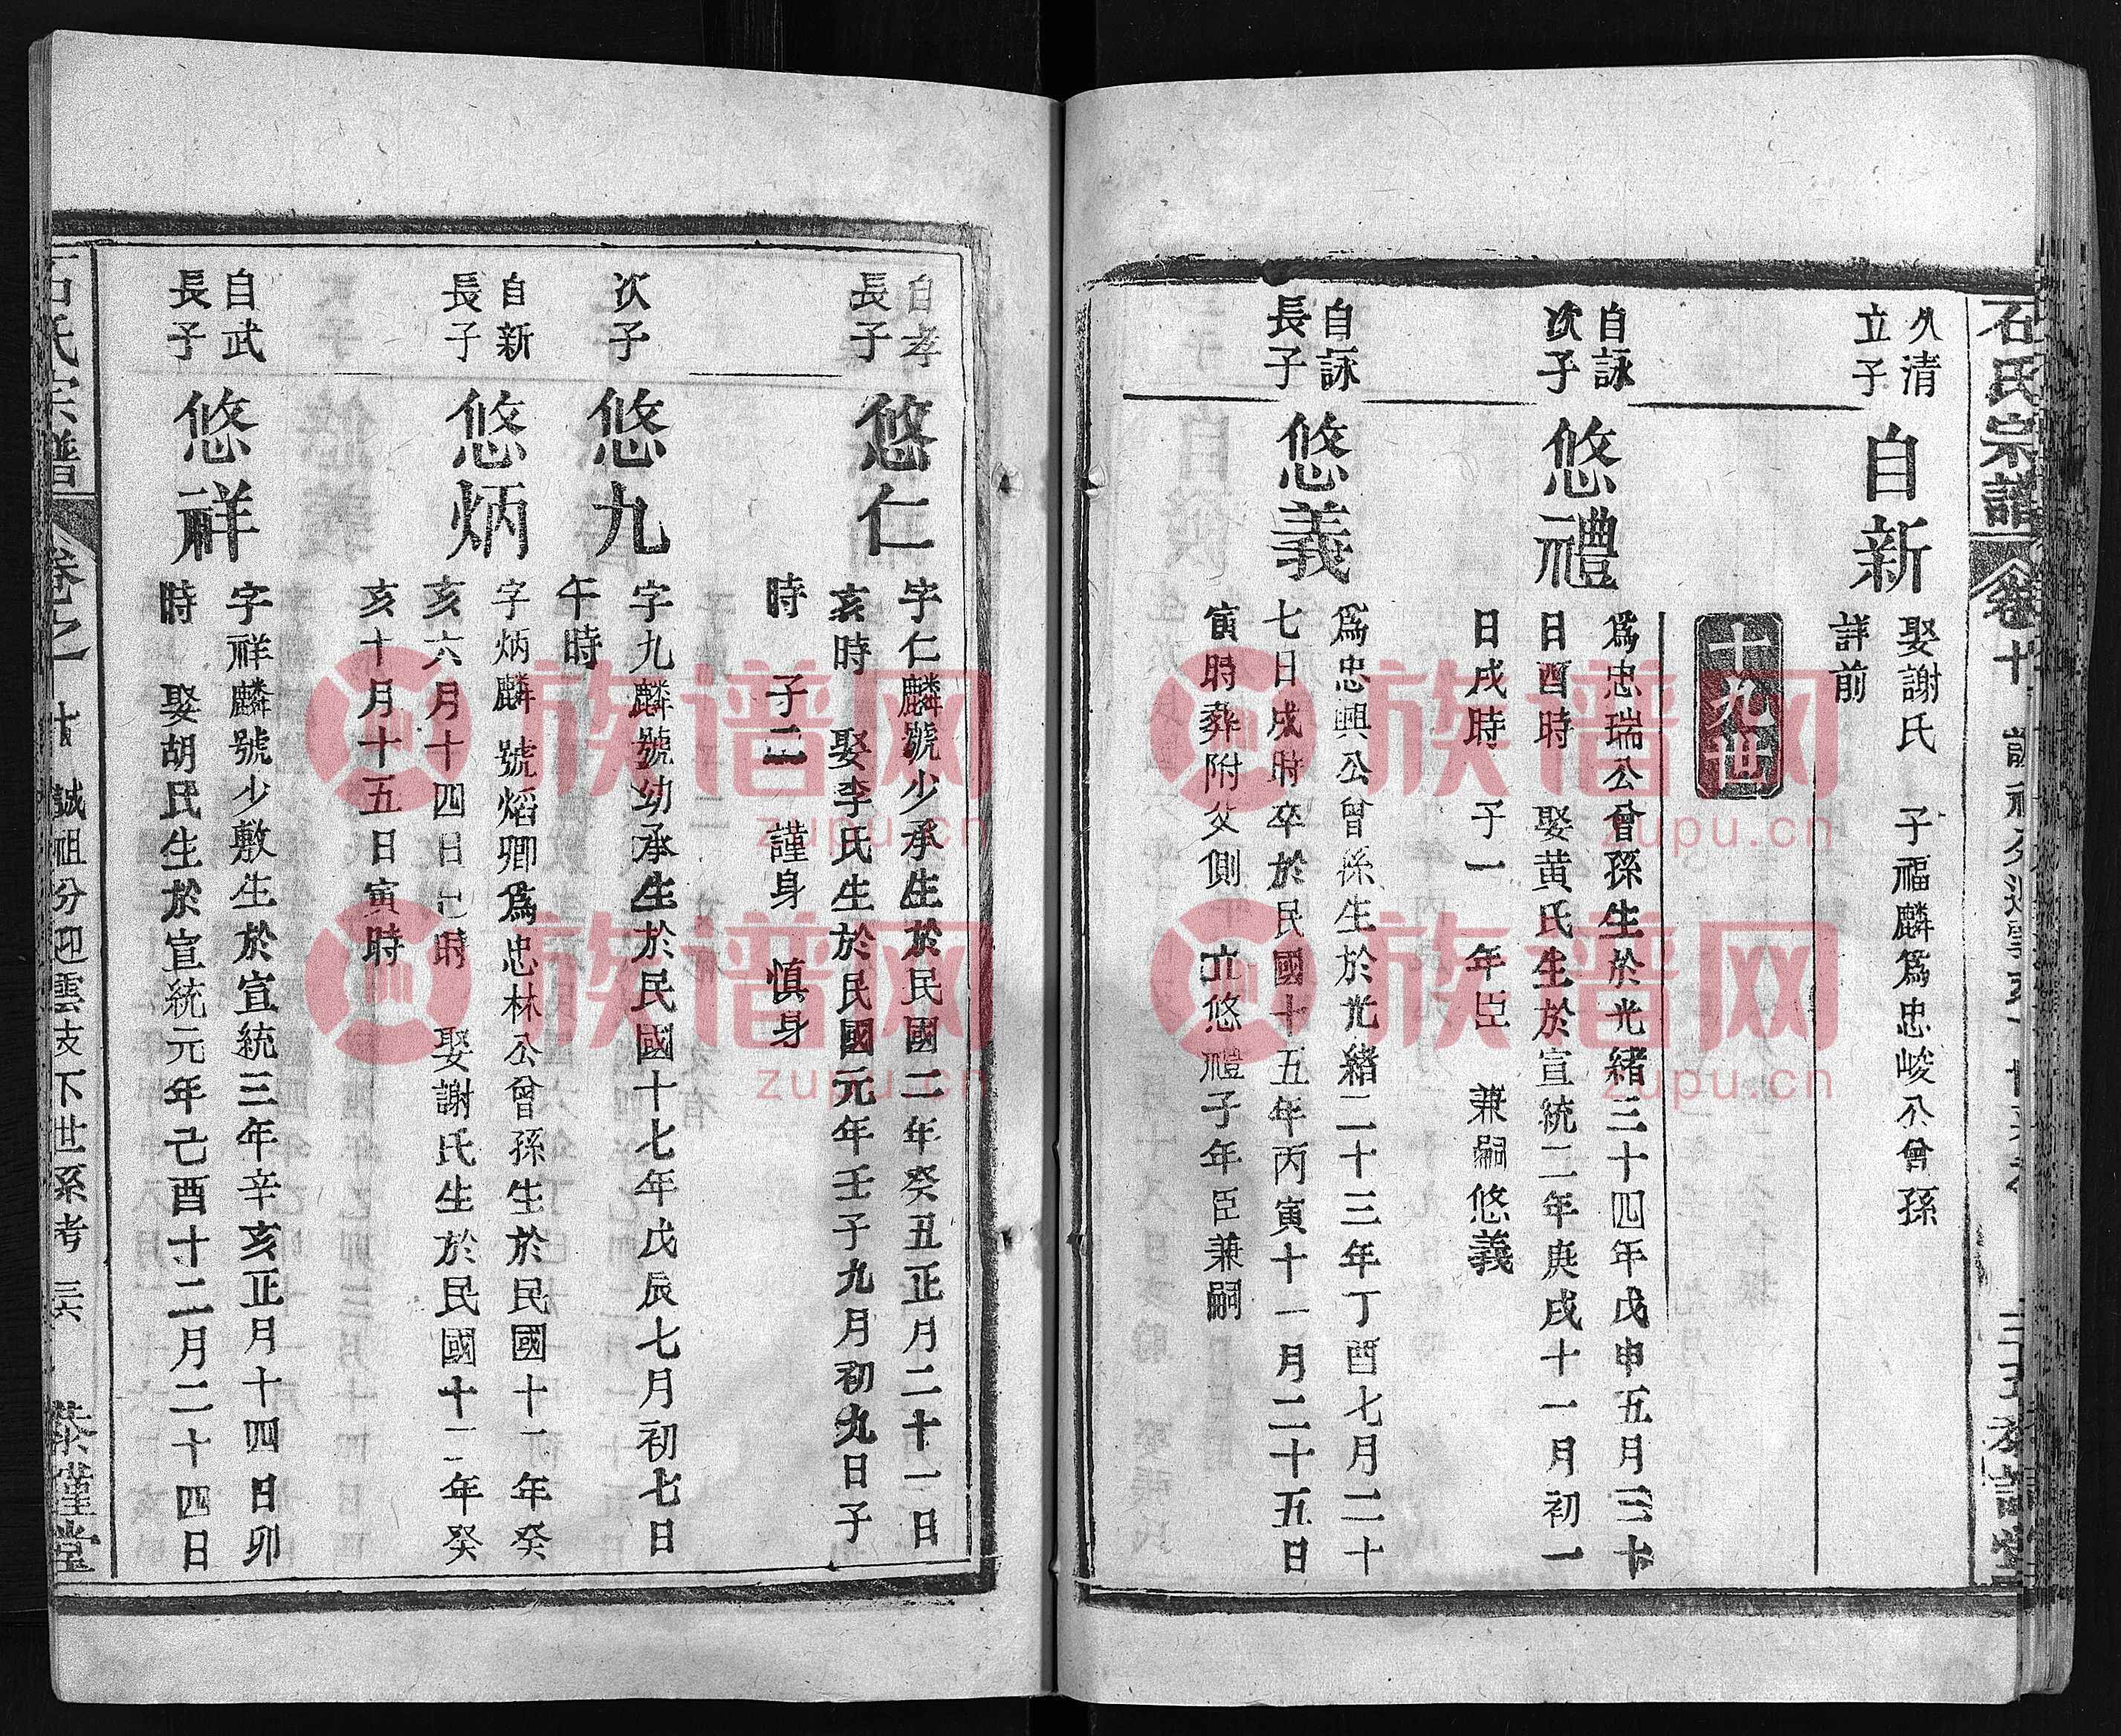 石氏宗譜
卷十
久清
立子
自新
娶謝氏 子福麟爲忠峻公曾孫
詳前
十九世
自詠
次子
悠禮
爲忠瑞公曾孫生於光緒三十四年戊申五月三十
日酉時 娶黄氏生於宣統二年庚戌十一月初一
日戌時 子一 年臣 兼嗣悠義
自詠
長子
悠義
爲忠興公曾孫生於光緒二十三年丁酉七月二十
七日戌時卒於民國十五年丙寅十一月二十五日
寅時葬附父側 立悠禮子年臣兼嗣
自孝
長子
悠仁
字仁麟號少承生於民國二年癸丑正月二十一日
亥時 娶李氏生於民國元年壬子九月初九日子
時 子二 謹身 慎身
次子
悠九
字九麟號幼承生於民國十七年戊辰七月初七日
午時
自新
長子
悠炳
字炳麟號熖卿爲忠林公曾孫生於民國十一年癸
亥六月十四日巳時 娶謝氏生於民國十二年癸
亥十月十五日寅時
自武
長子
悠祥
字祥麟號少敷生於宣統三年辛亥正月十四日卯
時 娶胡氏生於宣統元年己酉十二月二十四日
石氏宗譜
卷之二十 誠祖分迎雲支下世系考 三六
族谱网
zupu.cn
族谱网
zupu.cn
族谱网
zupu.cn
族谱网
zupu.cn